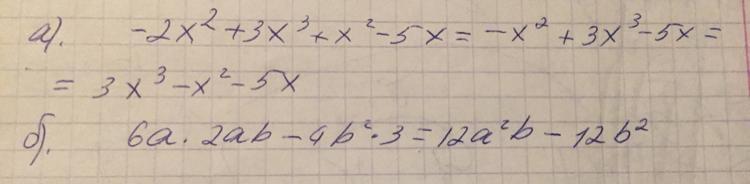 а). -2x² + 3x³ + x² - 5x = -x² + 3x³ - 5x =
= 3x³ - x² - 5x
б). 6a · 2ab - 4b² · 3 = 12a²b - 12b²